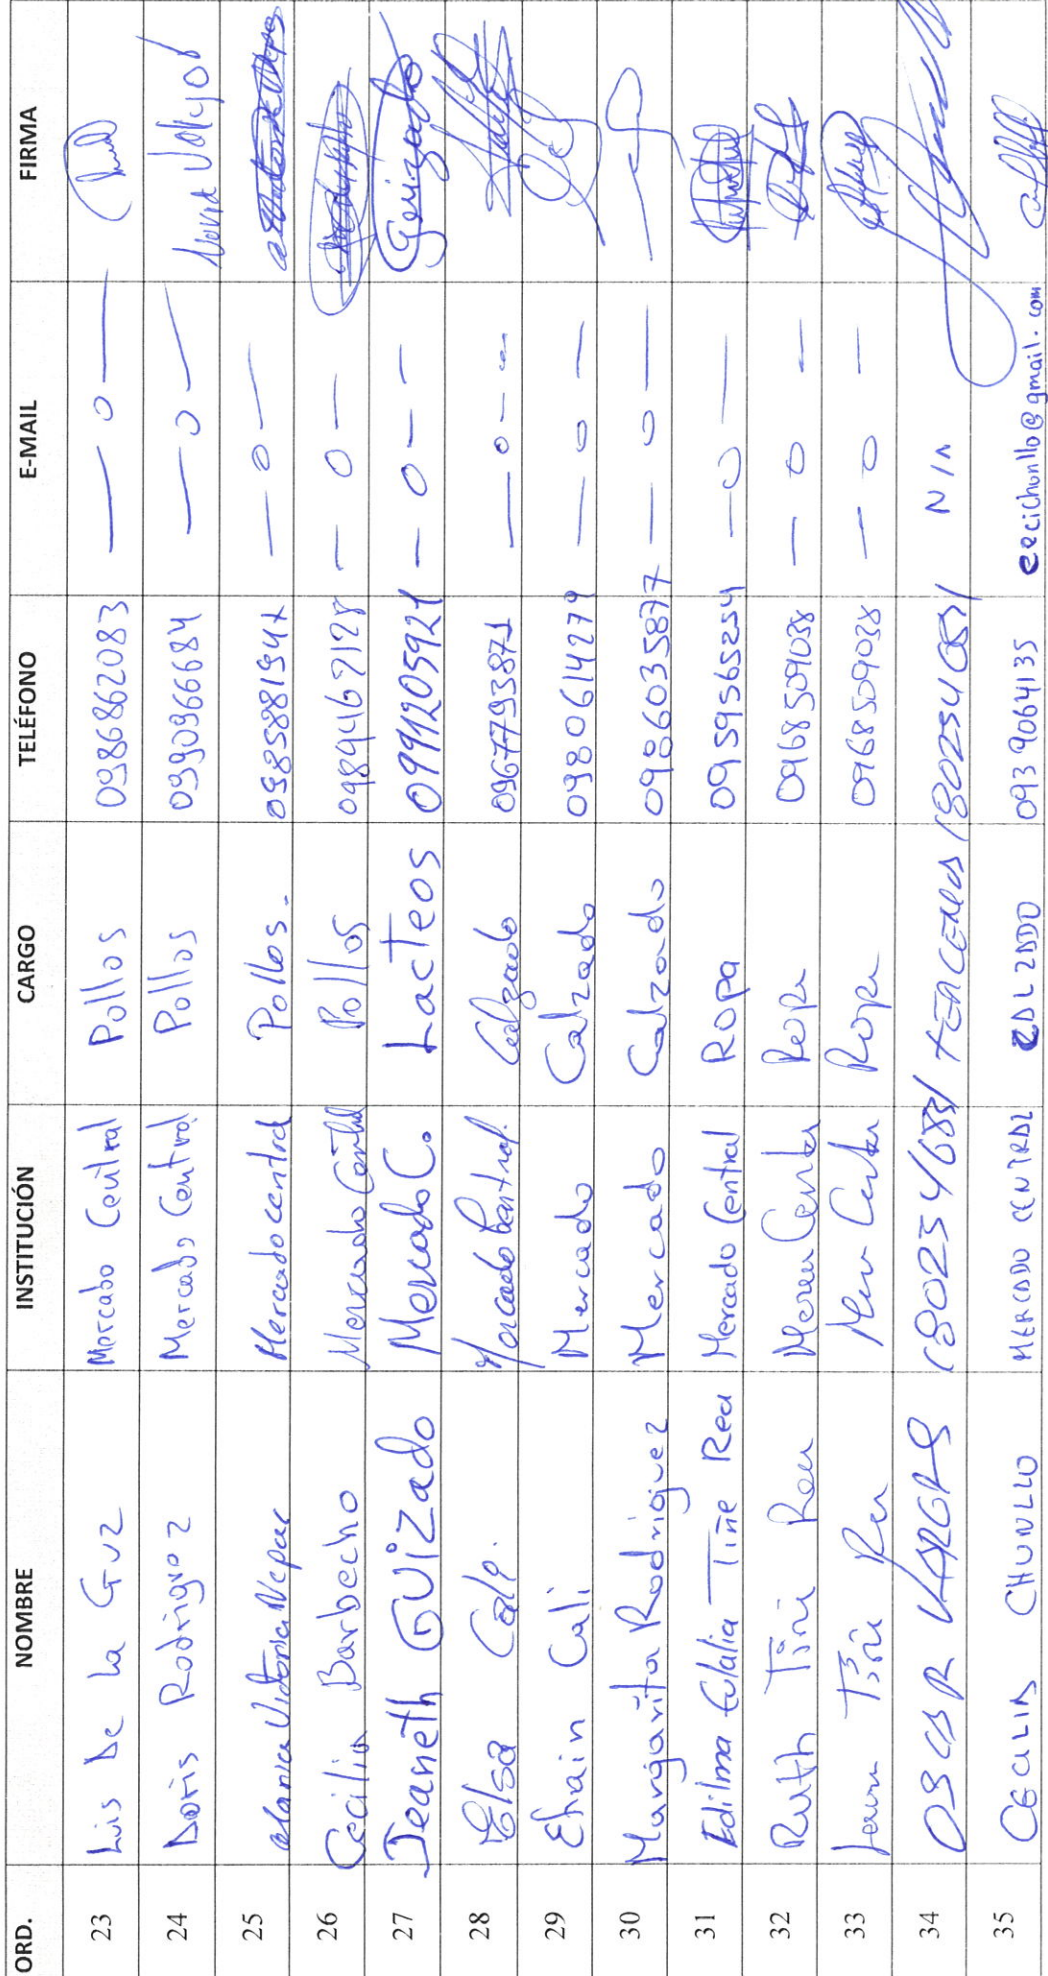 ORD. NOMBRE INSTITUCIÓN CARGO TELÉFONO E-MAIL FIRMA
23 Luis De La Guz Mercabo Central Pollos 0986862083 — o —
24 Doris Rodriguez Mercado Central Pollos 0990966684 — o —
25 Victoria Mercado central Pollos. — o —
26 Cecilia Barbecho Mercado Central Pollos — o —
27 Jeaneth GUIZado Mercado C. Lacteos 0991205921 — o — — Guizado
28 Elsa Cali. Mercado Central. Calzado 0967793871 — o — —
29 Efrain Cali Mercado Calzado 0980614279 — o —
30 Margarita Rodriguez Mercado Calzado 0986035877 — o —
31 Edilma Eulalia Tiñe Rea Mercado Central Ropa 0959565254 — o —
32 Ruth Rea Ropa 0968509038 — o —
33 Ropa 0968509038 — o —
34 OSCAR VARGAS N/A
35 CECILIA CHUNLLO MERCADO CENTRAL CALZADO 0939064135 cecichunllo@gmail.com